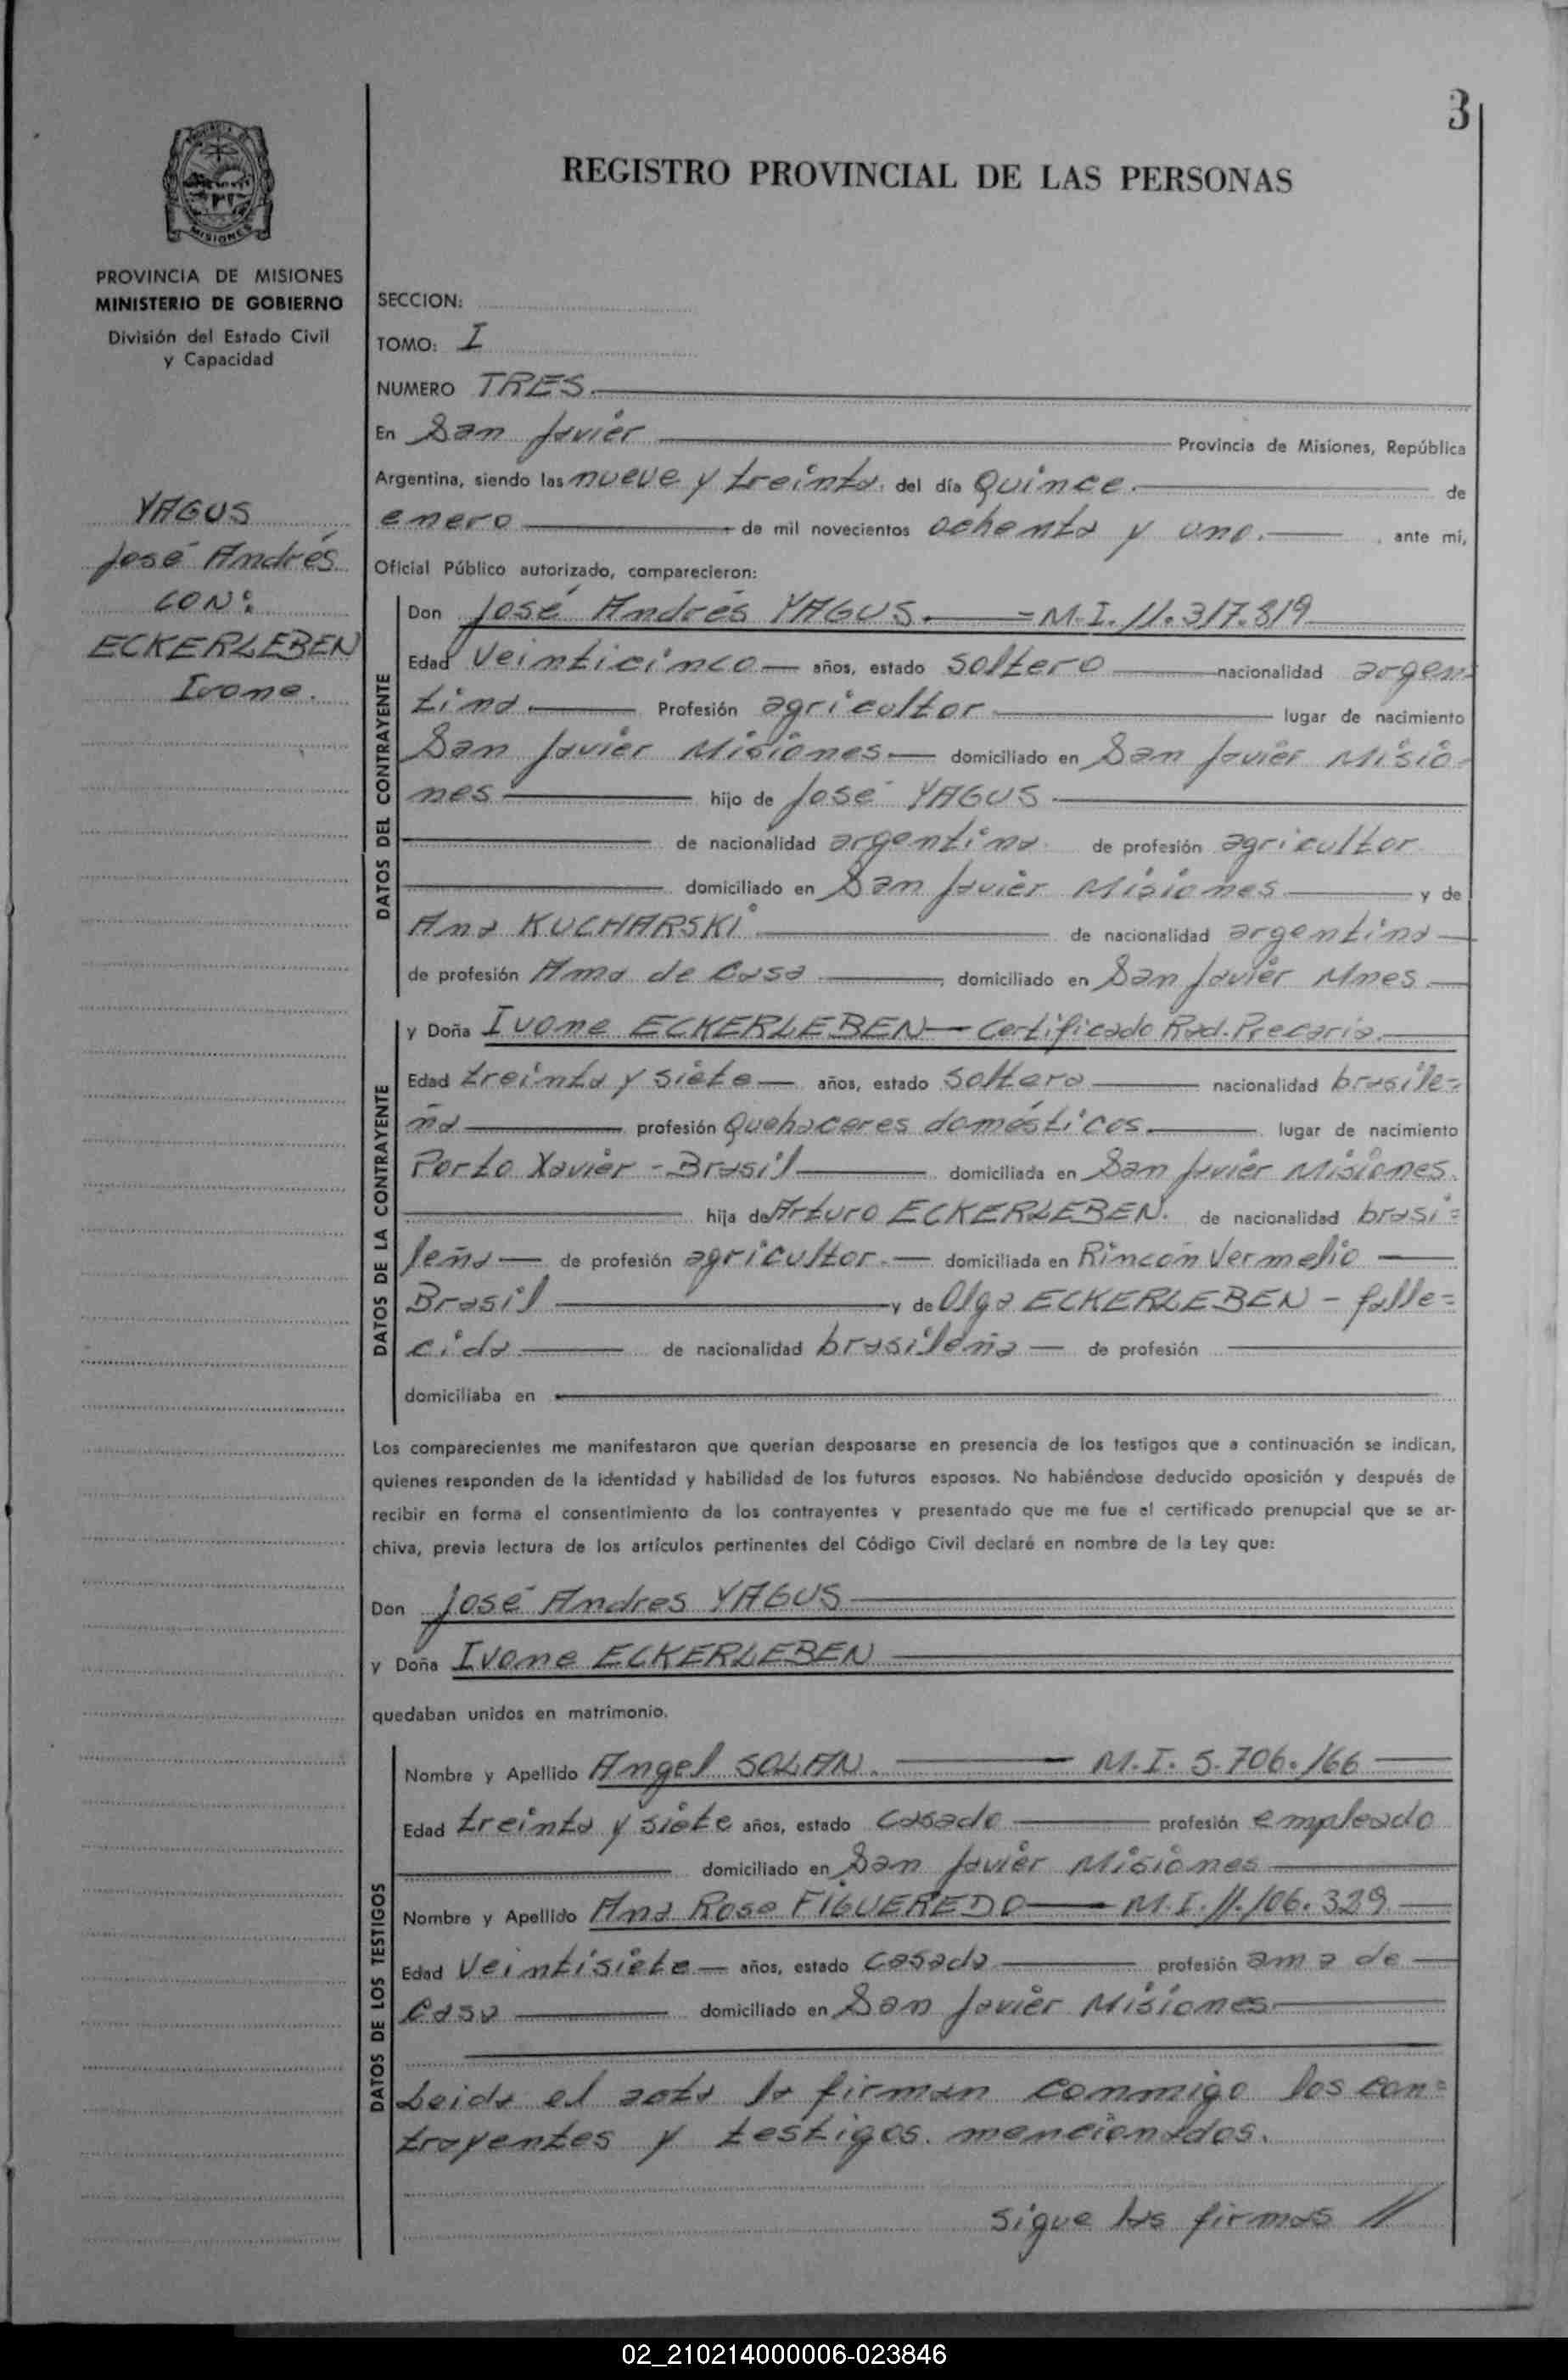 3
REGISTRO PROVINCIAL DE LAS PERSONAS
PROVINCIA DE
MISIONES
PROVINCIA DE MISIONES
MINISTERIO DE GOBIERNO
División del Estado Civil
y Capacidad
YAGUS
José Andrés
CON:
ECKERLEBEN
Ivone.
SECCION:
TOMO: I
NUMERO TRES.
En San Javier Provincia de Misiones, República
Argentina, siendo las nueve y treinta. del día Quince. de
enero de mil novecientos ochenta y uno. , ante mí,
Oficial Público autorizado, comparecieron:
DATOS DEL CONTRAYENTE
Don José Andrés YAGUS. = M.I. 11.317.819
Edad Veinticinco años, estado soltero nacionalidad argen=
tina. Profesión agricultor lugar de nacimiento
San Javier Misiones domiciliado en San Javier Misio=
nes hijo de José YAGUS
de nacionalidad argentina. de profesión agricultor
domiciliado en San Javier Misiones y de
Ana KUCHARSKI de nacionalidad argentina
de profesión Ama de Casa , domiciliado en San Javier Mnes.
DATOS DE LA CONTRAYENTE
y Doña Ivone ECKERLEBEN — Certificado Rad. Precaria.
Edad treinta y siete años, estado soltera nacionalidad brasile=
ña profesión Quehaceres domésticos. lugar de nacimiento
Porto Xavier - Brasil domiciliada en San Javier Misiones.
hija de Arturo ECKERLEBEN. de nacionalidad brasi=
leña de profesión agricultor. domiciliada en Rincón Vermelio
Brasil y de Olga ECKERLEBEN - falle=
cida de nacionalidad brasileña de profesión
domiciliaba en
Los comparecientes me manifestaron que querían desposarse en presencia de los testigos que a continuación se indican,
quienes responden de la identidad y habilidad de los futuros esposos. No habiéndose deducido oposición y después de
recibir en forma el consentimiento de los contrayentes y presentado que me fue el certificado prenupcial que se ar-
chiva, previa lectura de los artículos pertinentes del Código Civil declaré en nombre de la Ley que:
Don José Andres YAGUS
y Doña Ivone ECKERLEBEN
quedaban unidos en matrimonio.
DATOS DE LOS TESTIGOS
Nombre y Apellido Angel SOLAN. M.I. 5.706.166
Edad treinta y siete años, estado casado profesión empleado
domiciliado en San Javier Misiones
Nombre y Apellido Ana Rosa FIGUEREDO M.I. 11.106.329
Edad Veintisiete años, estado casada profesión ama de
Casa domiciliado en San Javier Misiones
Leida el acta la firman conmigo los con=
trayentes y testigos. mencionados.
sigue las firmas //
02_210214000006-023846